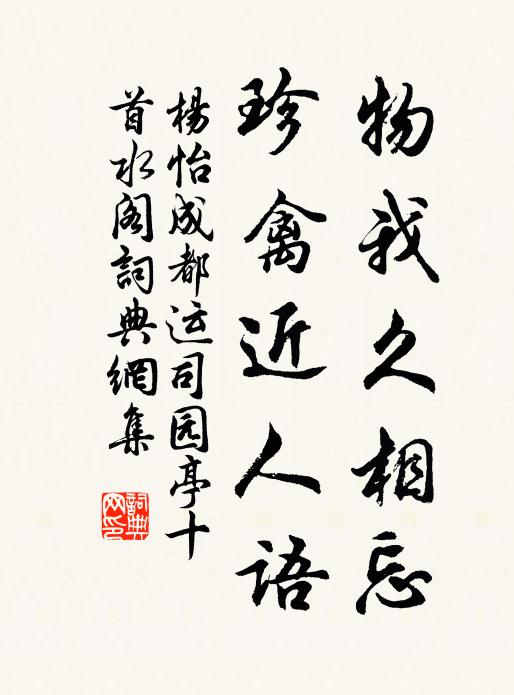 物我久相忘
珍禽近人語
楊怡成都运司园亭十
首水阁詞典網集
詞典
网印